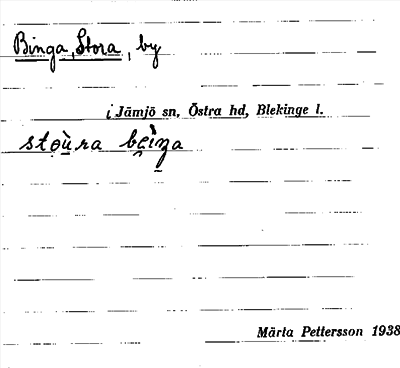 Binga, Stora, by
i Jämjö sn, Östra hd, Blekinge l.
Märta Pettersson 1938